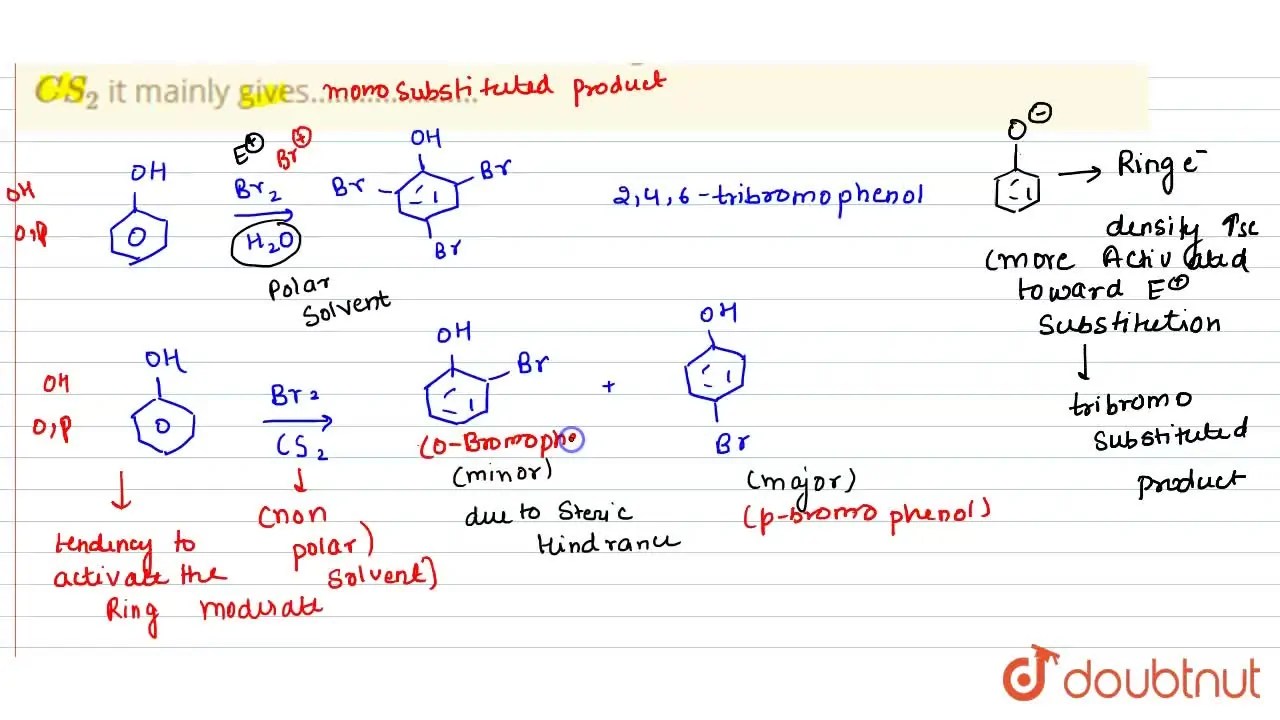 CS₂ it mainly gives.................... mono substituted product
OH
O,P
OH
O
E⊕
Br⊕
Br₂
H₂O
Polar
Solvent
OH
Br
Br
Br
2,4,6-tribromophenol
O⊖
Ring e⁻
density ↑se
(more Activated
toward E⊕
Substitution
tribromo
substituted
product
OH
O,P
OH
O
Br₂
CS₂
OH
Br
+
OH
Br
(O-Bromopho
(minor)
due to Steric
Hindrance
(major)
(p-bromo phenol)
tendency to
activate the
Ring moderate
(non
polar)
Solvent)
doubtnut